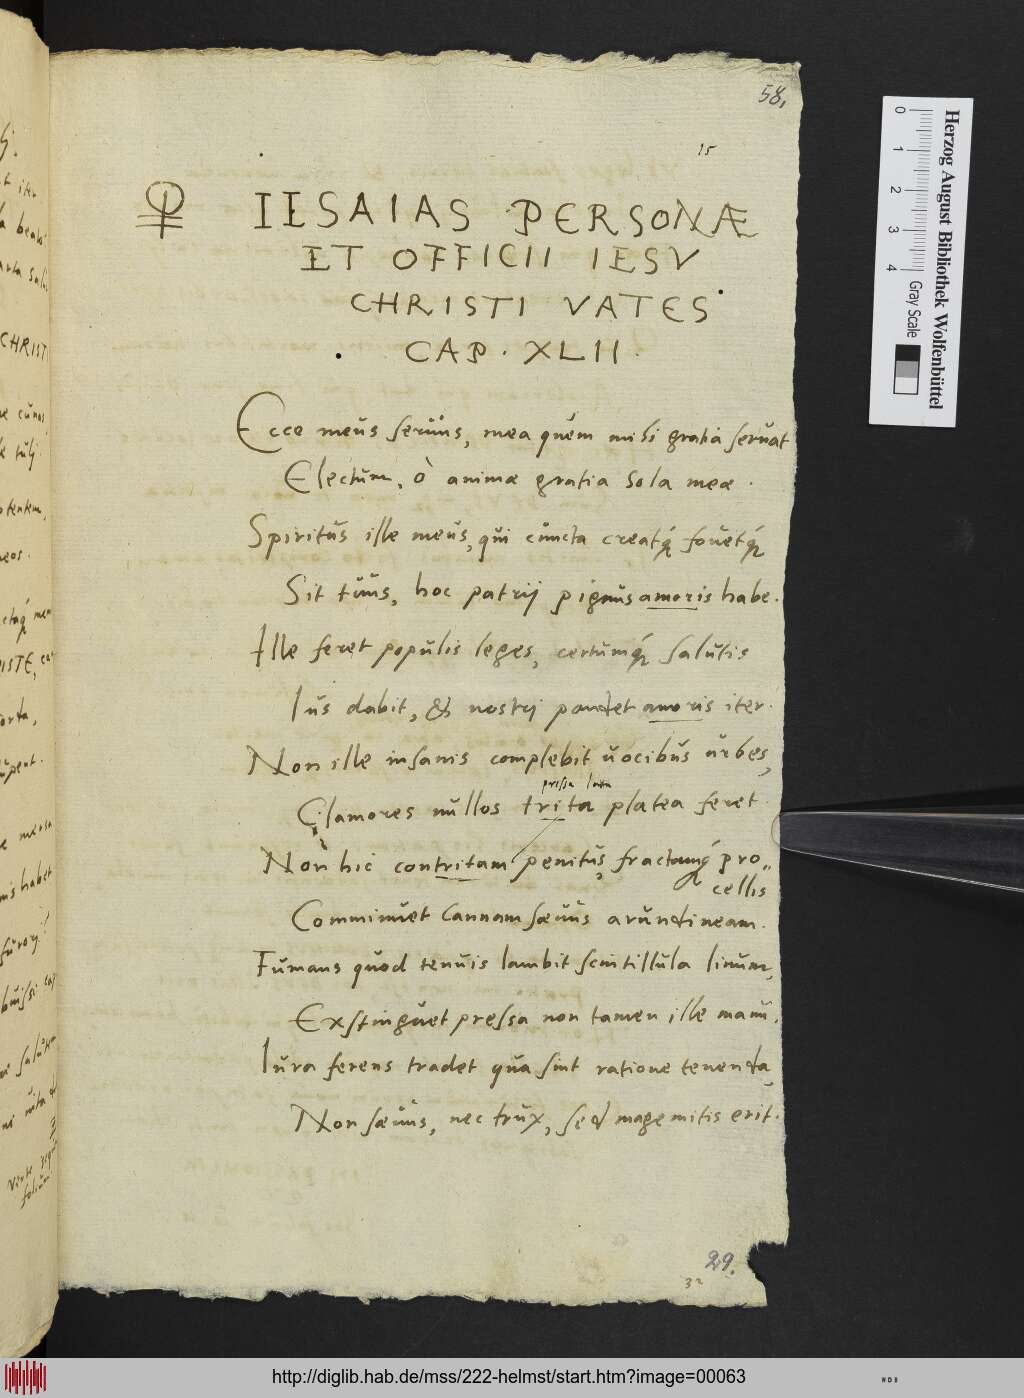 58,
15
IESAIAS PERSONÆ
ET OFFICII IESV
CHRISTI VATES.
CAP. XLII.
Ecce meus seruus, mea quem misi gratia seruat
Electum, ò animæ gratia sola meæ.
Spiritus ille meus, qui cuncta creatq́ fouetq́
Sit tuus, hoc patrij pignus amoris habe.
Ille feret populis leges, certumq́ salutis
Ius dabit, & nostrj pandet amoris iter.
Non ille insanis complebit uocibus urbes,
pressa
Clamores nullos trita platea feret
Non hic contritam penitus, fractamq́ pro„
cellis
Comminuet cannam sæuus arundineam.
Fumans quod tenuis lambit scintillula linum,
Exstinguet pressa non tamen ille manu.
Iura ferens tradet qua sint ratione tenenda,
Non sæuus, nec trux, sed mage mitis erit.
29.
32
CHRIST
Herzog August Bibliothek Wolfenbüttel
0 1 2 3 4
Gray Scale
http://diglib.hab.de/mss/222-helmst/start.htm?image=00063